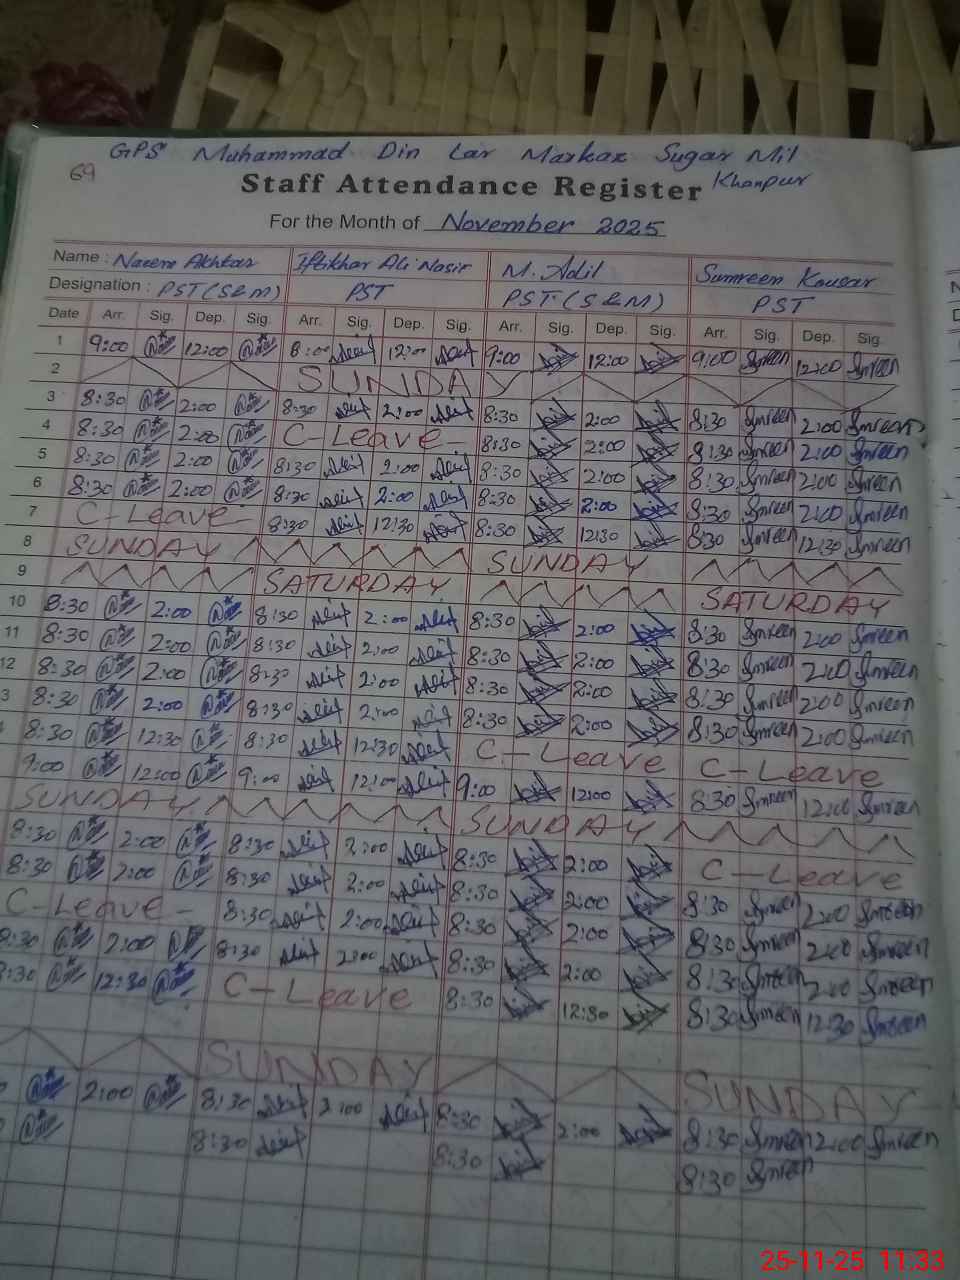 GPS Muhammad Din Lar Markaz Sugar Mil
69
Staff Attendance Register Khanpur
For the Month of November 2025
Name : Naeem Akhtar Iftikhar Ali Nasir M. Adil Sumreen Kousar
Designation : PST (S&M) PST PST (S&M) PST
Date Arr. Sig. Dep. Sig. Arr. Sig. Dep. Sig. Arr. Sig. Dep. Sig. Arr. Sig. Dep. Sig.
1 9:00 12:00 8:00 12:00 9:00 12:00 9:00 Smreen 12:00 Smreen
2 SUNDAY
3 8:30 2:00 8:30 2:00 8:30 2:00 8:30 Smreen 2:00 Smreen
4 8:30 2:00 C-Leave 8:30 2:00 8:30 Smreen 2:00 Smreen
5 8:30 2:00 8:30 2:00 8:30 2:00 8:30 Smreen 2:00 Smreen
6 8:30 2:00 8:30 2:00 8:30 2:00 8:30 Smreen 2:00 Smreen
7 C-Leave 8:30 12:30 8:30 12:30 8:30 Smreen 12:30 Smreen
8 SUNDAY SUNDAY
9 SATURDAY SATURDAY
10 8:30 2:00 8:30 2:00 8:30 2:00 8:30 Smreen 2:00 Smreen
11 8:30 2:00 8:30 2:00 8:30 2:00 8:30 Smreen 2:00 Smreen
12 8:30 2:00 8:30 2:00 8:30 2:00 8:30 Smreen 2:00 Smreen
3 8:30 2:00 8:30 2:00 8:30 2:00 8:30 Smreen 2:00 Smreen
8:30 12:30 8:30 12:30 C-Leave C-Leave
9:00 12:00 9:00 12:00 9:00 12:00 8:30 Smreen 12:00 Smreen
SUNDAY SUNDAY
8:30 2:00 8:30 2:00 8:30 2:00 C-Leave
8:30 2:00 8:30 2:00 8:30 2:00 8:30 Smreen 2:00 Smreen
C-Leave 8:30 2:00 8:30 2:00 8:30 Smreen 2:00 Smreen
8:30 2:00 8:30 2:00 8:30 2:00 8:30 Smreen 2:00 Smreen
8:30 12:30 C-Leave 8:30 12:30 8:30 Smreen 12:30 Smreen
SUNDAY SUNDAY
2:00 8:30 2:00 8:30 2:00 8:30 Smreen 2:00 Smreen
8:30 8:30 8:30 Smreen
25-11-25 11:33